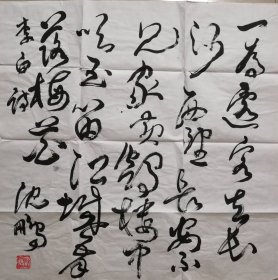 一為遷客去長
沙西望長安不
見家黃鶴樓中
吹玉笛江城五月
落梅花
李白詩
沈鵬